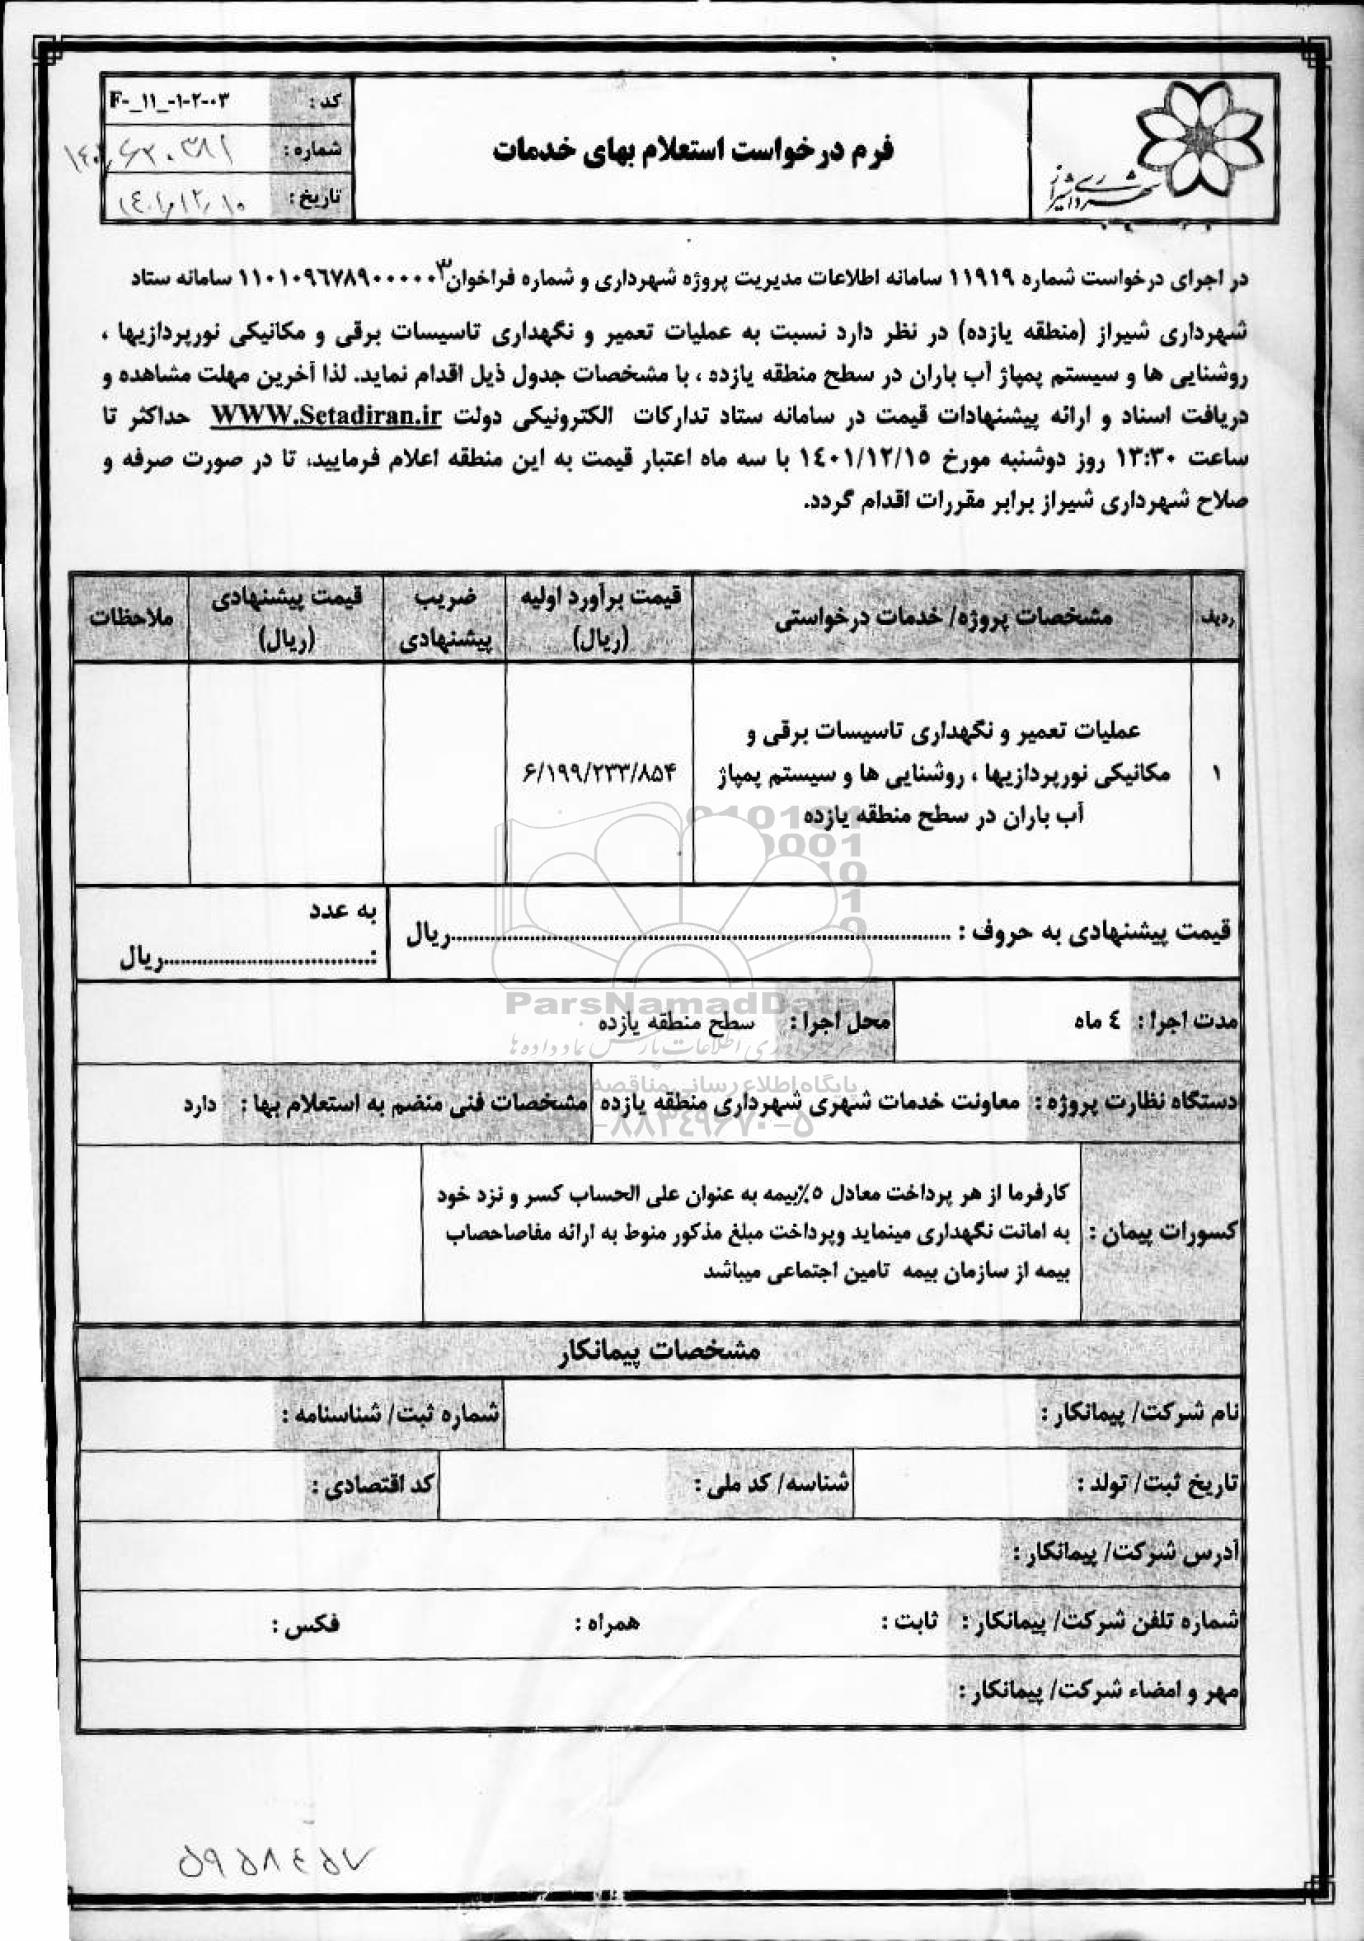 شهرداری شیراز
فرم درخواست استعلام بهای خدمات
کد : F-_۱۱_-۱-۲-۰۳
شماره :
تاریخ : ۱۴۰۱,۱۲,۱۰
در اجرای درخواست شماره ۱۱۹۱۹ سامانه اطلاعات مدیریت پروژه شهرداری و شماره فراخوان ۱۱۰۱۰۹۶۷۸۹۰۰۰۰۰۳ سامانه ستاد
شهرداری شیراز (منطقه یازده) در نظر دارد نسبت به عملیات تعمیر و نگهداری تاسیسات برقی و مکانیکی نورپردازیها ،
روشنایی ها و سیستم پمپاژ آب باران در سطح منطقه یازده ، با مشخصات جدول ذیل اقدام نماید. لذا آخرین مهلت مشاهده و
دریافت اسناد و ارائه پیشنهادات قیمت در سامانه ستاد تدارکات الکترونیکی دولت WWW.Setadiran.ir حداکثر تا
ساعت ۱۳:۳۰ روز دوشنبه مورخ ۱۴۰۱/۱۲/۱۵ با سه ماه اعتبار قیمت به این منطقه اعلام فرمایید، تا در صورت صرفه و
صلاح شهرداری شیراز برابر مقررات اقدام گردد.
ردیف مشخصات پروژه/ خدمات درخواستی قیمت برآورد اولیه (ریال) ضریب پیشنهادی قیمت پیشنهادی (ریال) ملاحظات
عملیات تعمیر و نگهداری تاسیسات برقی و
۱ مکانیکی نورپردازیها ، روشنایی ها و سیستم پمپاژ ۶/۱۹۹/۲۳۳/۸۵۴
آب باران در سطح منطقه یازده
قیمت پیشنهادی به حروف : ....................ریال به عدد
:....................ریال
مدت اجرا : ٤ ماه محل اجرا : سطح منطقه یازده
ParsNamadData
پایگاه اطلاع رسانی مناقصه و مزایده
دستگاه نظارت پروژه : معاونت خدمات شهری شهرداری منطقه یازده مشخصات فنی منضم به استعلام بها : دارد
۸۸۳۴۹۶۷۰-۵
کسورات پیمان : کارفرما از هر پرداخت معادل ۵٪بیمه به عنوان علی الحساب کسر و نزد خود
به امانت نگهداری مینماید وپرداخت مبلغ مذکور منوط به ارائه مفاصاحصاب
بیمه از سازمان بیمه تامین اجتماعی میباشد
مشخصات پیمانکار
نام شرکت/ پیمانکار : شماره ثبت/ شناسنامه :
تاریخ ثبت/ تولد : شناسه/ کد ملی : کد اقتصادی :
آدرس شرکت/ پیمانکار :
شماره تلفن شرکت/ پیمانکار : ثابت : همراه : فکس :
مهر و امضاء شرکت/ پیمانکار :